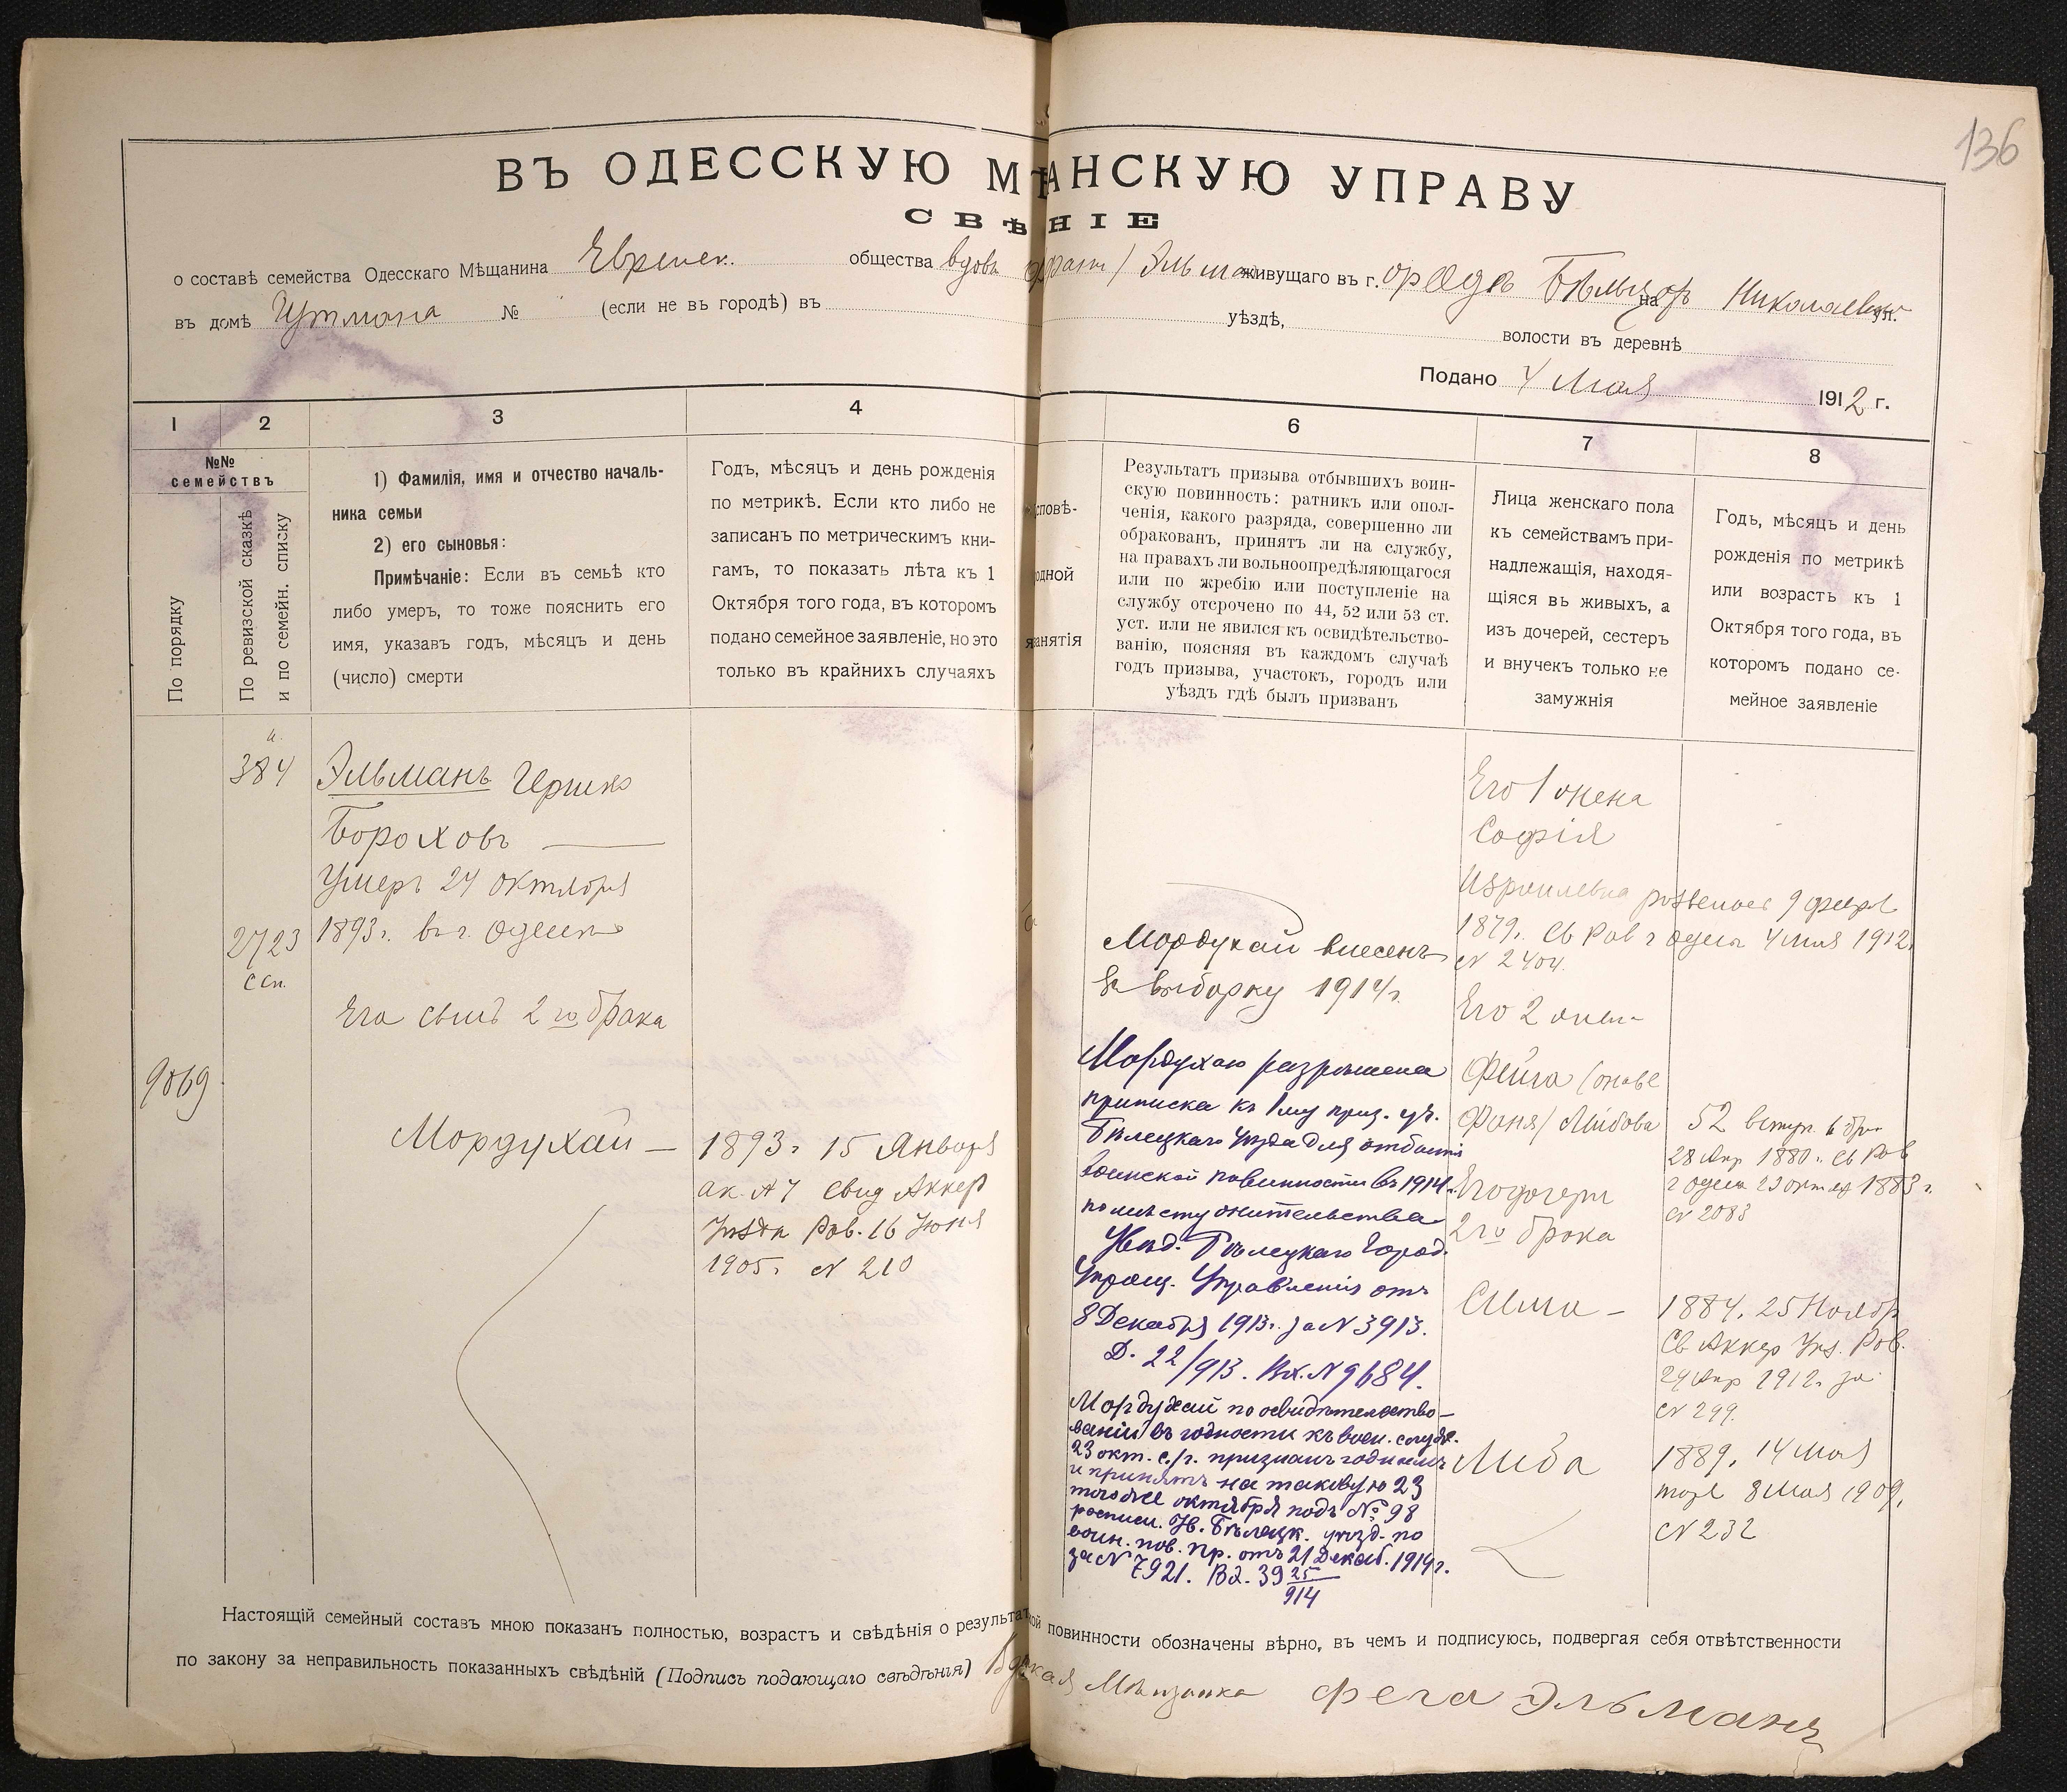 136
ВЪ ОДЕССКУЮ МѢ АНСКУЮ УПРАВУ
СВѢ НІЕ
о составѣ семейства Одесскаго Мѣщанина Еврейск. общества вдова Эльма живущаго въ г. Бѣльцы на Николаевск ул.
въ домѣ Гутмана № (если не въ городѣ) въ уѣздѣ, волости въ деревнѣ
Подано 4 Мая 1912 г.
1 2 3 4 6 7 8
№№ семействъ
По порядку
По ревизской сказкѣ и по семейн. списку
1) Фамилія, имя и отчество началь-
ника семьи
2) его сыновья:
Примѣчаніе: Если въ семьѣ кто
либо умеръ, то тоже пояснить его
имя, указавъ годъ, мѣсяцъ и день
(число) смерти
Годъ, мѣсяцъ и день рожденія
по метрикѣ. Если кто либо не
записанъ по метрическимъ кни-
гамъ, то показать лѣта къ 1
Октября того года, въ которомъ
подано семейное заявленіе, но это
только въ крайнихъ случаяхъ
сповѣ-
одной
анятія
Результатъ призыва отбывшихъ воин-
скую повинность: ратникъ или опол-
ченія, какого разряда, совершенно ли
обракованъ, принятъ ли на службу,
на правахъ ли вольноопредѣляющагося
или по жребію или поступленіе на
службу отсрочено по 44, 52 или 53 ст.
уст. или не явился къ освидѣтельство-
ванію, поясняя въ каждомъ случаѣ
годъ призыва, участокъ, городъ или
уѣздъ гдѣ былъ призванъ
Лица женскаго пола
къ семействамъ при-
надлежащія, находя-
щіяся въ живыхъ, а
изъ дочерей, сестеръ
и внучекъ только не
замужнія
Годъ, мѣсяцъ и день
рожденія по метрикѣ
или возрастъ къ 1
Октября того года, въ
которомъ подано се-
мейное заявленіе
384
2723
ссп.
9069
Эльманъ Гершко
Бороховъ
Умеръ 24 октября
1893 г. въ г. Одессѣ
Его сынъ 2го брака
Мордухай —
1893 г 15 Января
ак. № 7 свид Аккер
Уѣзда Рав. 16 Юня
1905 г № 210
Мордухай внесенъ
въ выборку 1914 г.
Мордухаю разрѣшена
приписка къ 1му приз. уч.
Бѣлецкаго уѣзда для отбытія
воинской повинности въ 1914 г.
по мѣсту жительства
Увѣд. Бѣлецкаго Город.
Упрощ. Управленія отъ
8 Декабря 1913 г. за № 3913.
Д. 22/913. Вх. № 9684.
Мордухай по освидѣтельство-
ваніи въ годности къ воен. службѣ.
23 окт. с./г. признанъ годнымъ
и принятъ на таковую 23
того же октября подъ № 98
росписи. Ув. Бѣлецк. уѣзд. по
воин. пов. пр. отъ 21 Декаб. 1914 г.
за № 7921. Вх. 39 25/914
Его 1 жена
Софія
Израилевна рожденная 9 февр
1879. Св Рав г Одессы 4 мая 1912
№ 2404.
Его 2 жена
Фейга (онаже
Фаня) Лейбова
52 вступ. въ бр.
28 Апр 1880 г. Св Рав
г Одессы 23 октяб 1883 г.
№ 2083
Его дочери
2го брака
Сима —
1884. 25 Ноябр
Св Аккер Уѣз. Рав.
24 Апр 1912 г за
№ 299.
Либа
1889. 14 Мая
тоже 8 Мая 1909.
№ 232
Настоящій семейный составъ мною показанъ полностью, возрастъ и свѣдѣнія о результат ой повинности обозначены вѣрно, въ чемъ и подписуюсь, подвергая себя отвѣтственности
по закону за неправильность показанныхъ свѣдѣній (Подпись подающаго свѣдѣнія) Мѣщанка Фега Эльманъ